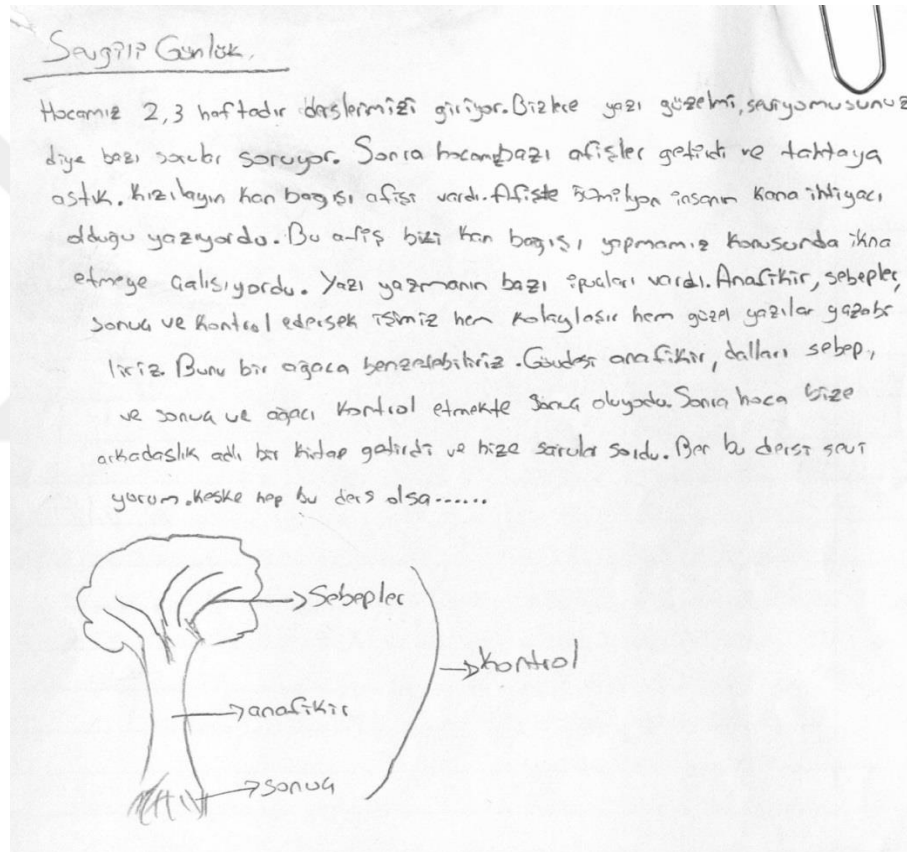 Sevgili Günlük,
Hocamız 2,3 haftadır derslerimizi giriyor. Bizlere yazı güzelmi, seviyomusunuz
diye bazı sorular soruyor. Sonra hocam bazı afişler getirdi ve tahtaya
astık. Kızılayın kan bağışı afişi vardı. Afişte insanın kana ihtiyacı
olduğu yazıyordu. Bu afiş bizi kan bağışı yapmamız konusunda ikna
etmeye çalışıyordu. Yazı yazmanın bazı ipuçları vardı. Anafikir, sebepler,
sonuç ve kontrol edersek işimiz hem kolaylaşır hem güzel yazılar yazabi
liriz. Bunu bir ağaca benzetebiliriz. Gövdesi anafikir, dalları sebep,
ve sonuç ve ağacı kontrol etmekte sonuç oluyodu. Sonra hoca bize
arkadaşlık adlı bir kitap getirdi ve bize sorular sordu. Ben bu dersi sevi
yorum. Keske hep bu ders olsa......
Sebepler
Kontrol
anafikir
sonuç